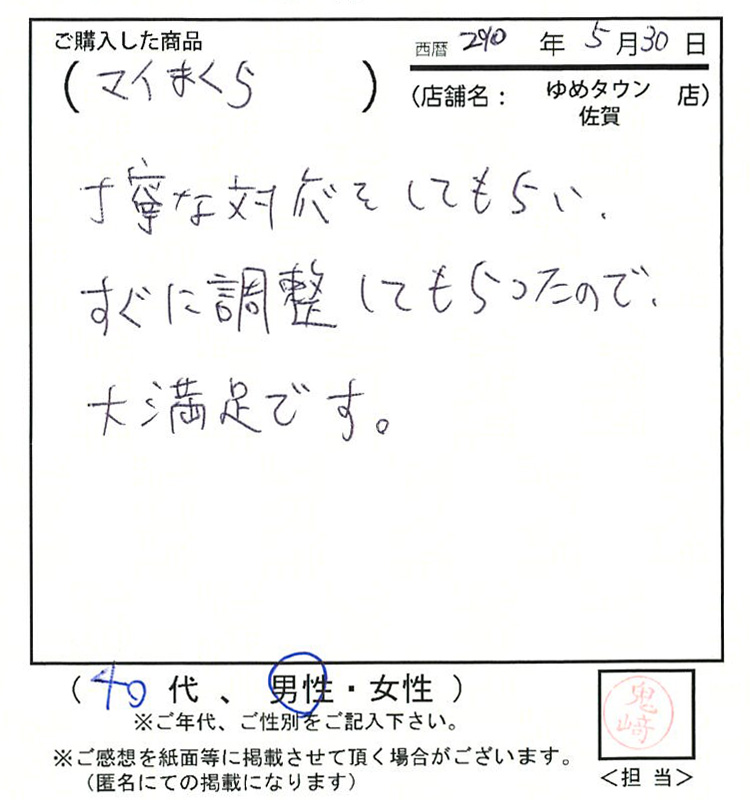 ご購入した商品
(マイまくら)
西暦 2910 年 5月30日
(店舗名: ゆめタウン佐賀 店)
丁寧な対応をしてもらい、
すぐに調整してもらったので、
大満足です。
(40代、男性・女性)
※ご年代、ご性別をご記入下さい。
※ご感想を紙面等に掲載させて頂く場合がございます。
(匿名にての掲載になります)
鬼﨑
<担当>